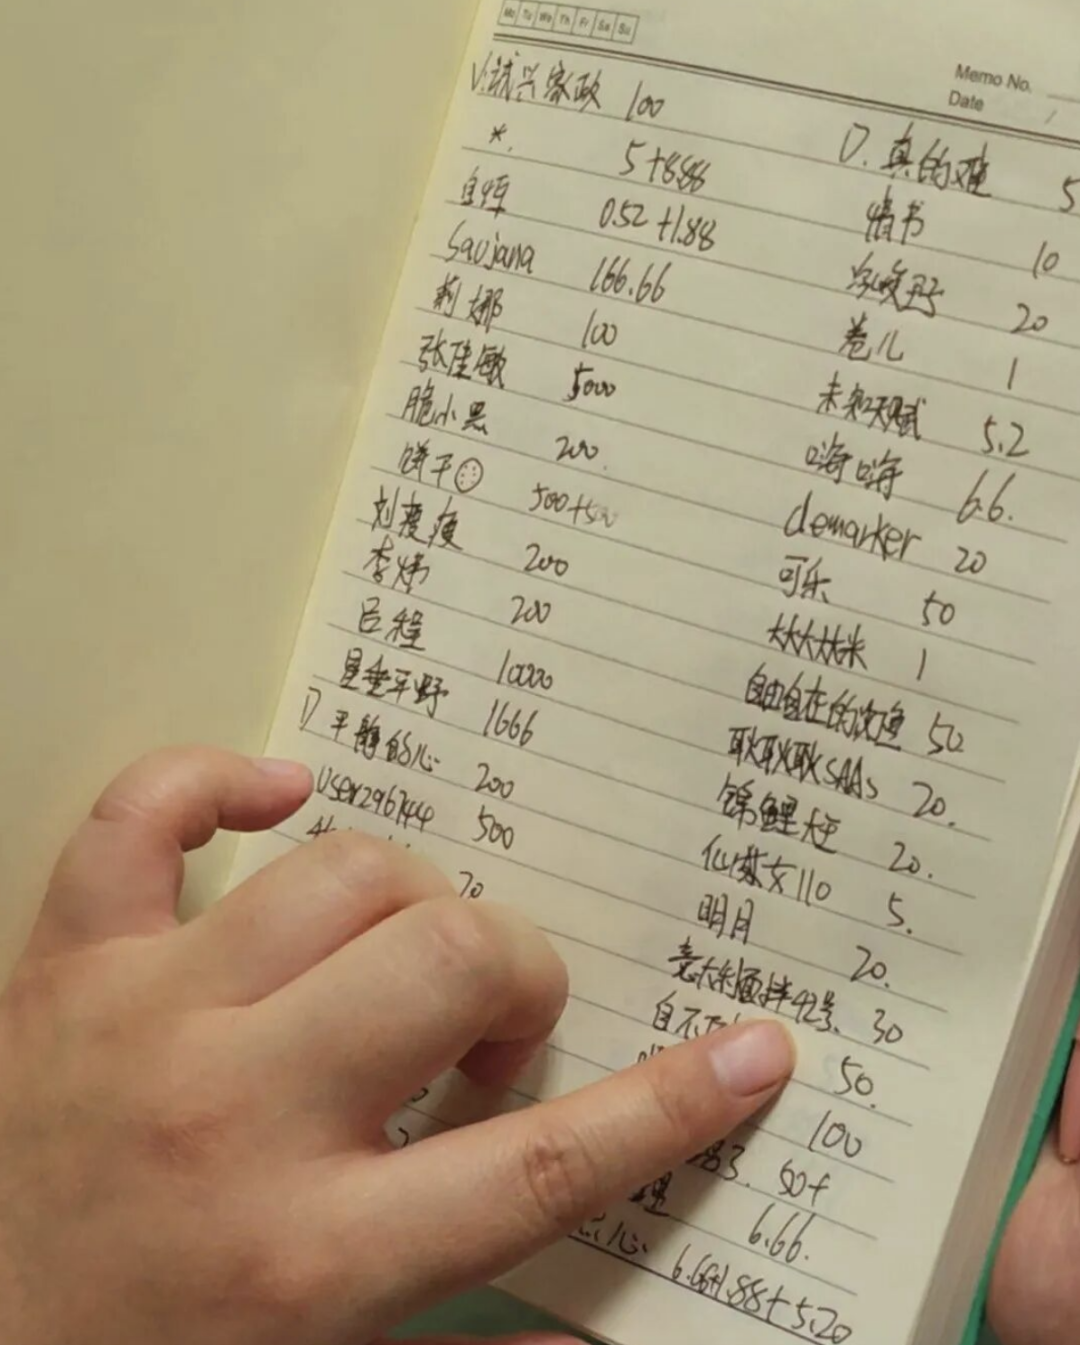 Mo Tu We Th Fr Sa Su
Memo No.
Date
V:诚兴家政 100
*. 5+8.88
自恒 0.52+1.88
Saujana 166.66
莉娜 100
张佳敏 5000
脆小黑 200.
饼干 500+500
刘瘦瘦 200
李炜 200
吕程 10000
星垂平野 1666
D 平静的心 200
user2967144 500
70
D. 真的难 5
情书 10
20
卷儿 1
未知天赋 5.2
嗨嗨 6.6.
demarker 20
可乐 50
1
自由自在的 50
耿耿耿SAAs 20.
锦鲤大王 20.
仙女110 5.
明月 20.
意大利面拌42号. 30
自不 50.
100
83. 50+
理 6.66.
心. 6.66+1.88+5.20